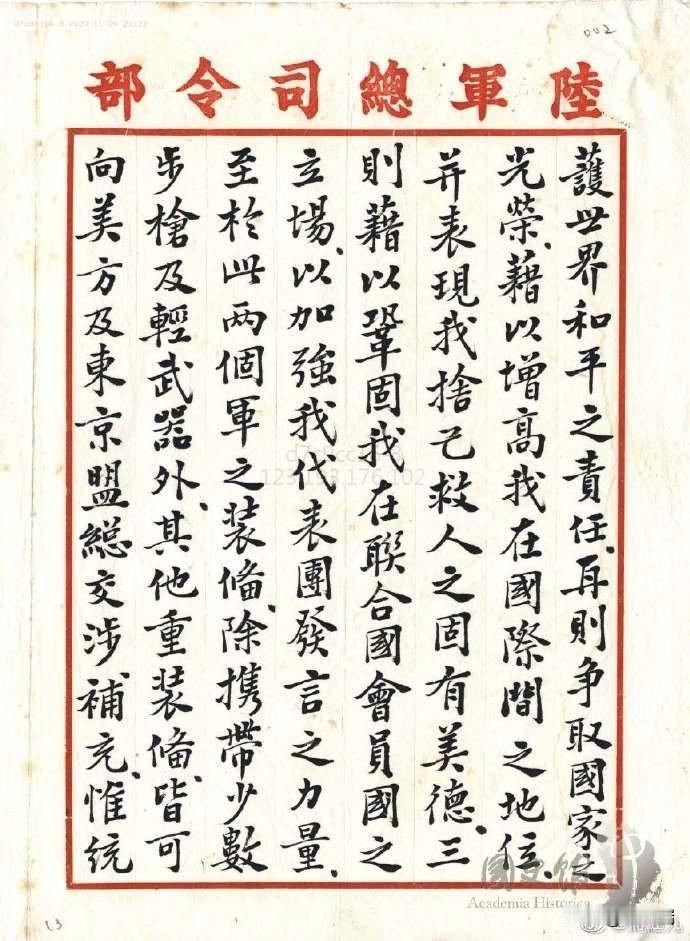 002
陸軍總司令部
護世界和平之責任、再則爭取國家之
光榮、藉以增高我在國際間之地位、
并表現我捨己救人之固有美德、三
則藉以鞏固我在聯合國會員國之
立場、以加強我代表團發言之力量、
至於此两個軍之装備、除攜帶少數
步槍及輕武器外、其他重装備、皆可
向美方及東京盟總交涉補充、惟統
123.193.176.102
國史館
Academia Historica
13